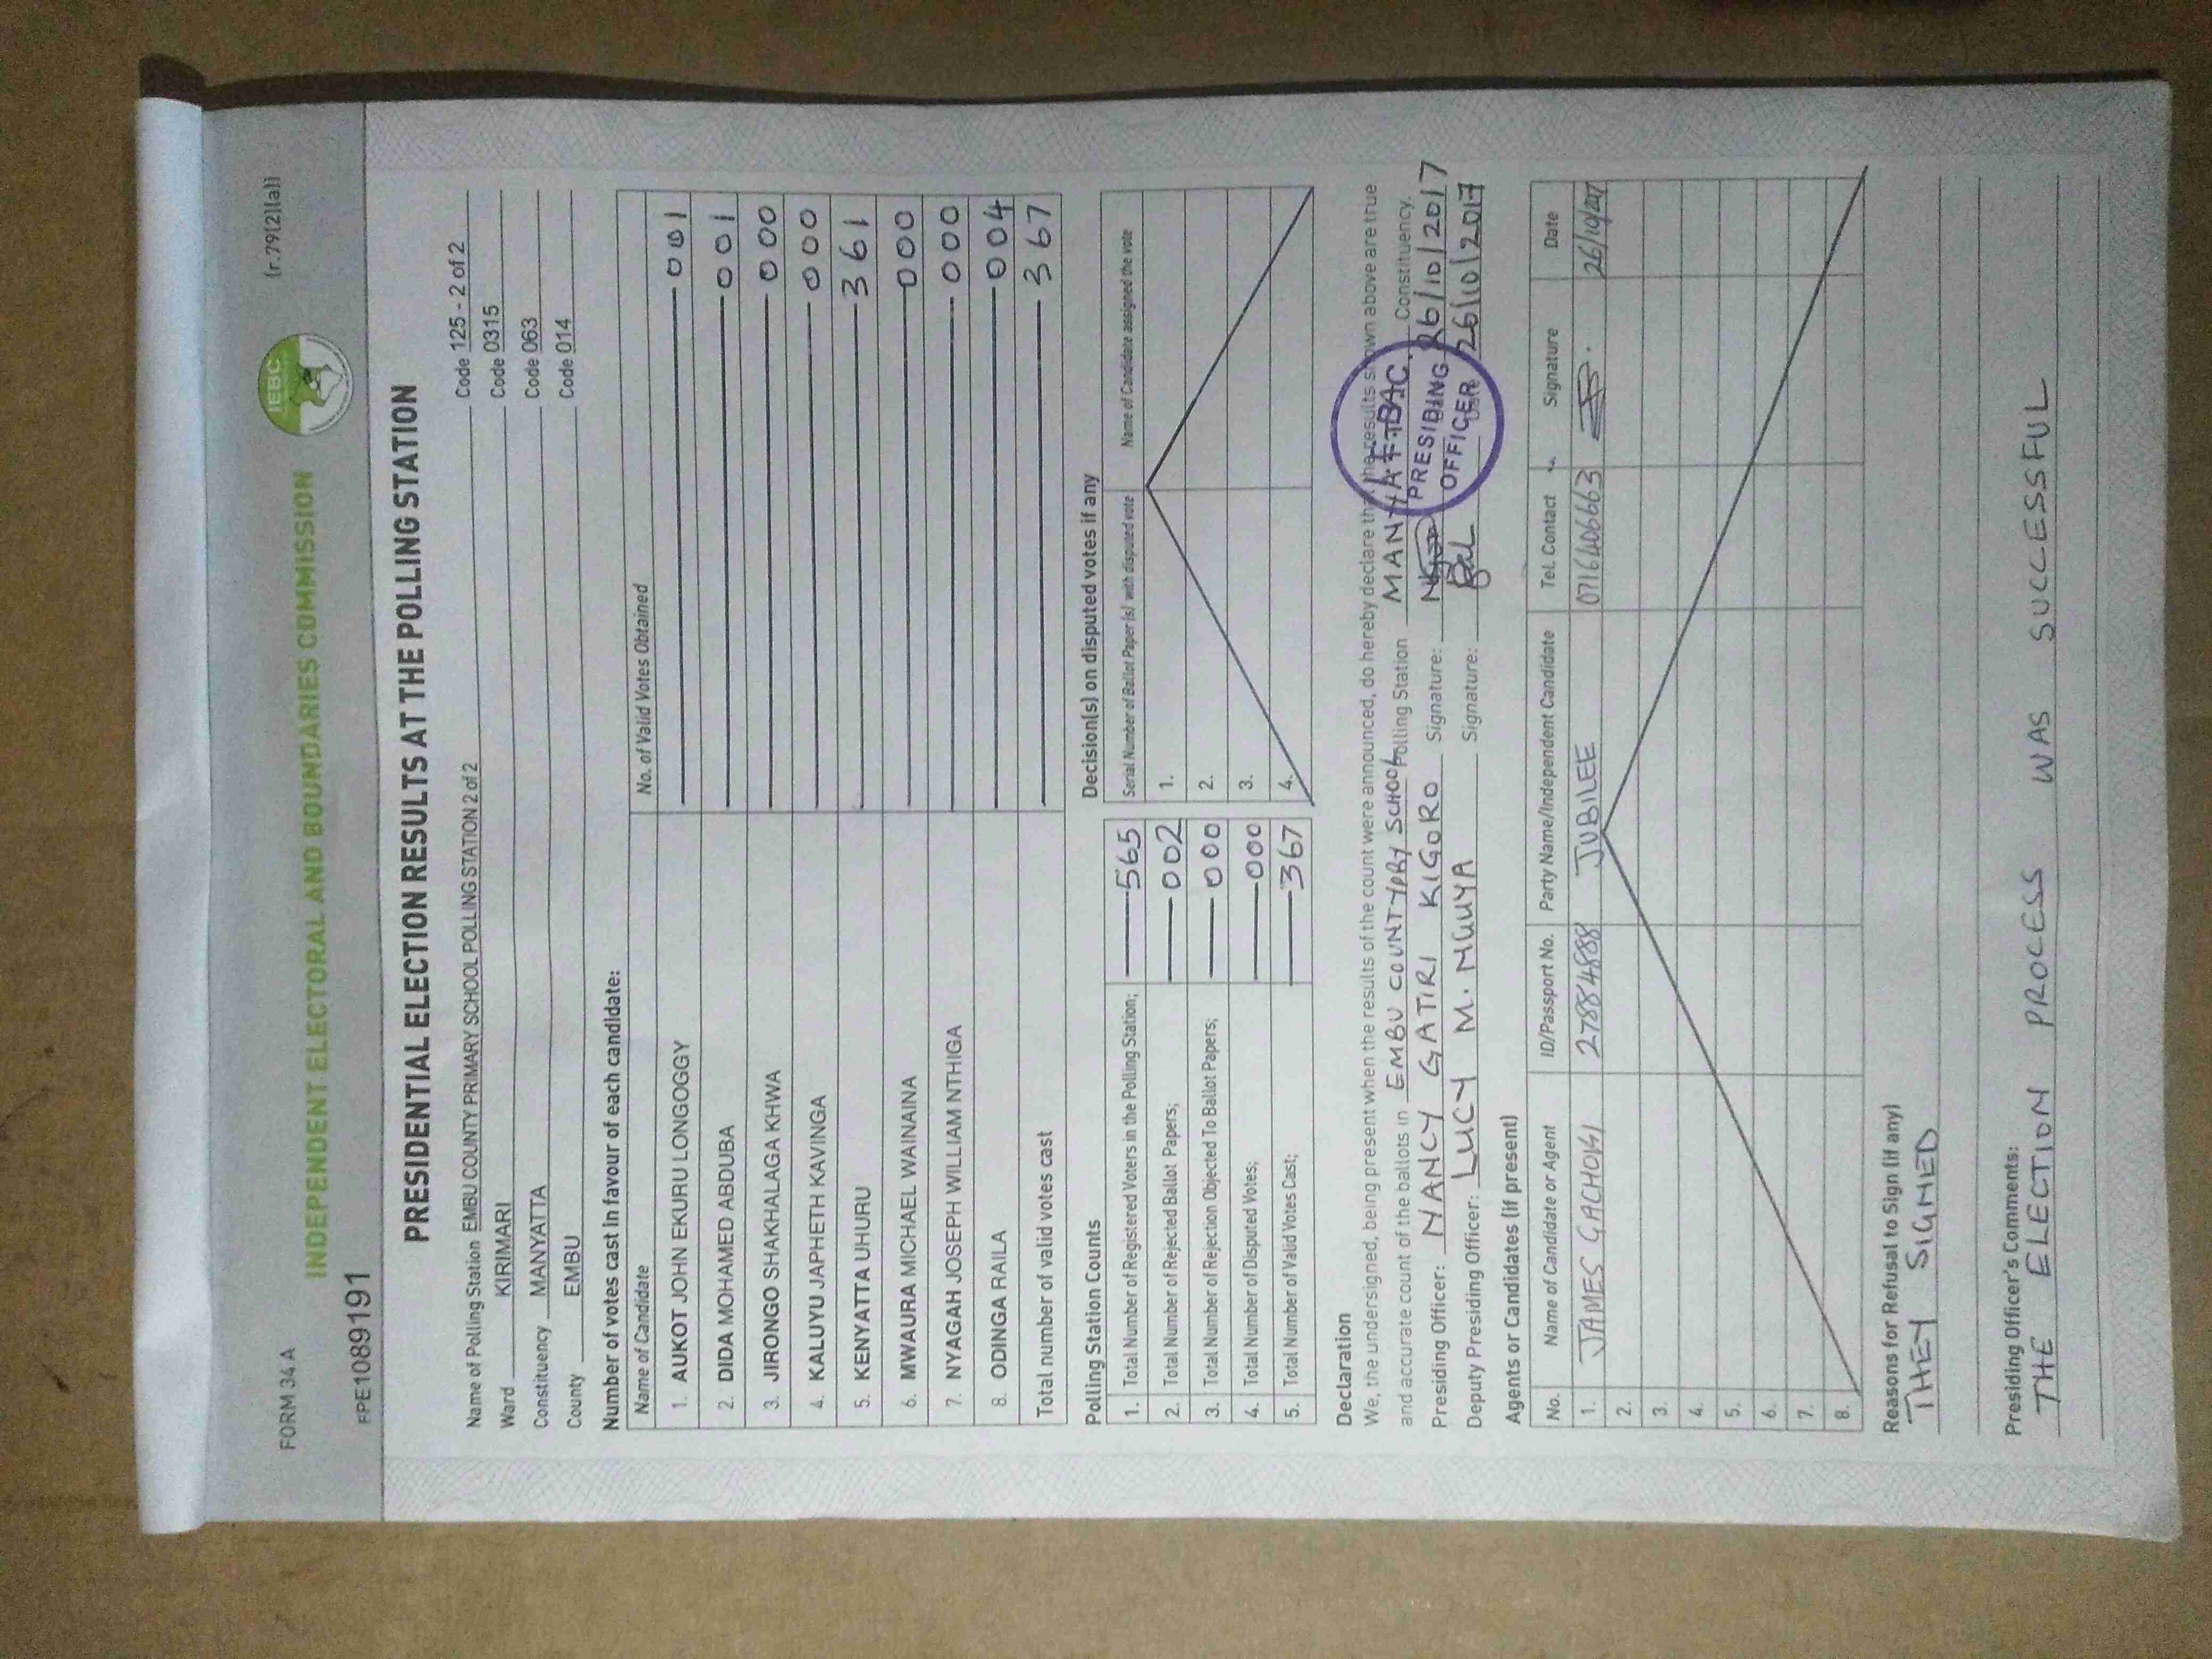 FORM 34 A (r.79(2)(a))
IEBC
INDEPENDENT ELECTORAL AND BOUNDARIES COMMISSION
FPE1089191
PRESIDENTIAL ELECTION RESULTS AT THE POLLING STATION
Name of Polling Station EMBU COUNTY PRIMARY SCHOOL POLLING STATION 2 of 2 Code 125 - 2 of 2
Ward KIRIMARI Code 0315
Constituency MANYATTA Code 063
County EMBU Code 014
Number of votes cast in favour of each candidate:
Name of Candidate No. of Valid Votes Obtained
1. AUKOT JOHN EKURU LONGOGGY 001
2. DIDA MOHAMED ABDUBA 001
3. JIRONGO SHAKHALAGA KHWA 000
4. KALUYU JAPHETH KAVINGA 000
5. KENYATTA UHURU 361
6. MWAURA MICHAEL WAINAINA 000
7. NYAGAH JOSEPH WILLIAM NTHIGA 000
8. ODINGA RAILA 004
Total number of valid votes cast 367
Polling Station Counts
1. Total Number of Registered Voters in the Polling Station; 565
2. Total Number of Rejected Ballot Papers; 002
3. Total Number of Rejection Objected To Ballot Papers; 000
4. Total Number of Disputed Votes; 000
5. Total Number of Valid Votes Cast; 367
Decision(s) on disputed votes if any
Serial Number of Ballot Paper (s) with disputed vote Name of Candidate assigned the vote
1.
2.
3.
4.
Declaration
We, the undersigned, being present when the results of the count were announced, do hereby declare the results shown above are true
and accurate count of the ballots in EMBU COUNTY PRY SCHOOL Polling Station MANYATTA Constituency.
Presiding Officer: NANCY GATIRI KIGORO Signature: 26/10/2017
Deputy Presiding Officer: LUCY M. MUUYA Signature: 26/10/2017
PRESIDING
OFFICER
Agents or Candidates (if present)
No. Name of Candidate or Agent ID/Passport No. Party Name/Independent Candidate Tel. Contact Signature Date
1. JAMES GACHOKI 27884888 JUBILEE 0716406663 26/10/2017
2.
3.
4.
5.
6.
7.
8.
Reasons for Refusal to Sign (if any)
THEY SIGNED
Presiding Officer's Comments:
THE ELECTION PROCESS WAS SUCCESSFUL